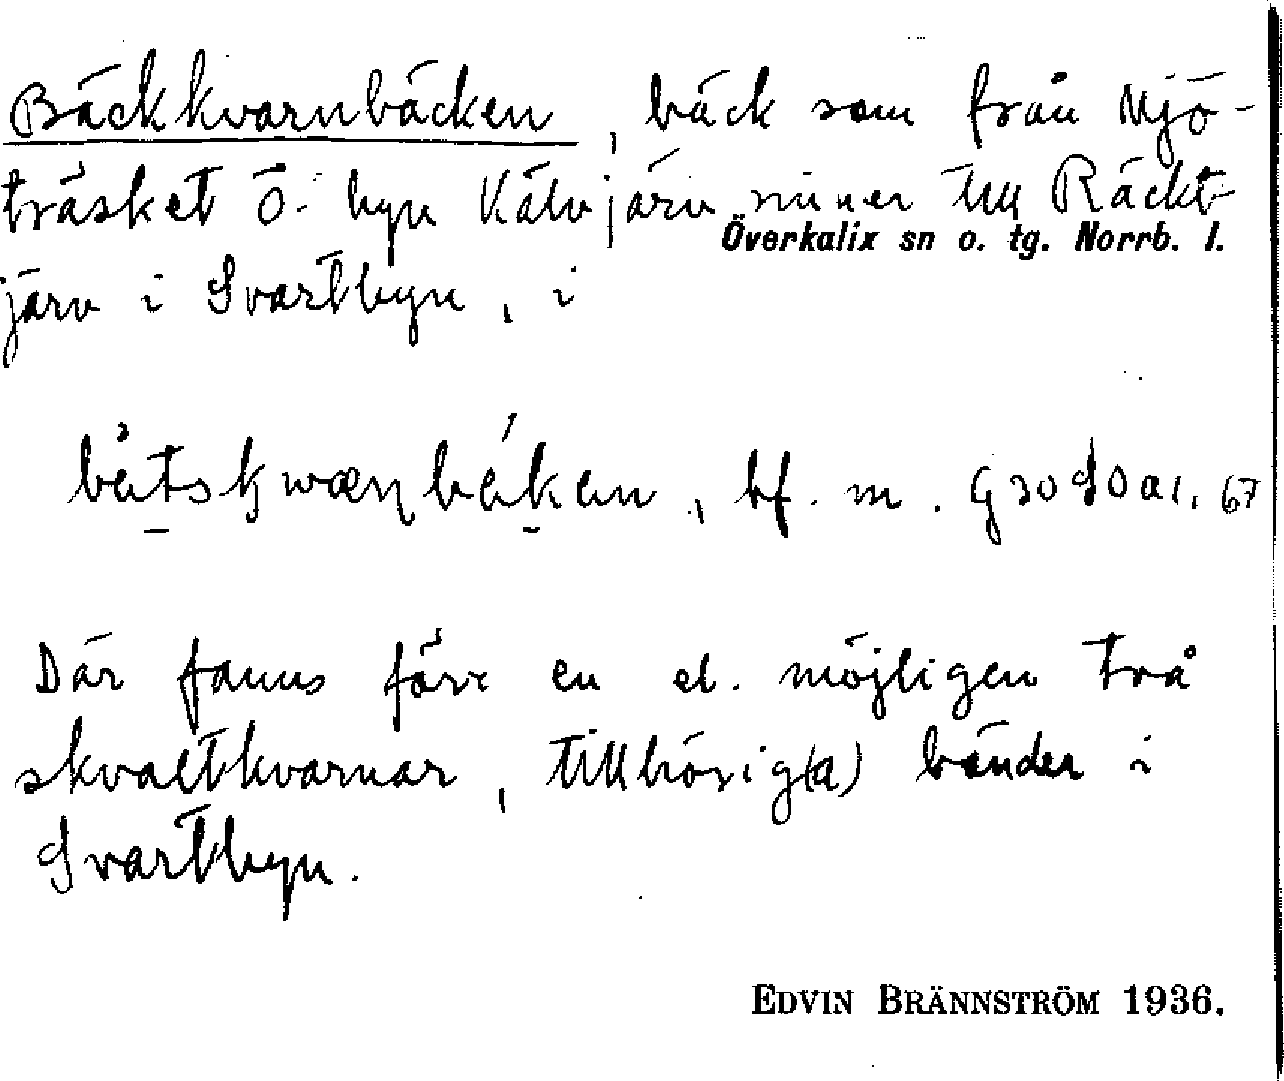 Bäckkvarnbäcken, bäck som från Mjö-
träsket ö. byn Kälvjärv rinner till Räckt-
Överkalix sn o. tg. Norrb. l.
järv i Svartbyn, i
bf. m. 67
Där fanns förr en el. möjligen två
skvaltkvarnar, tillhörig(a) bönder i
Svartbyn.
EDVIN BRÄNNSTRÖM 1936.